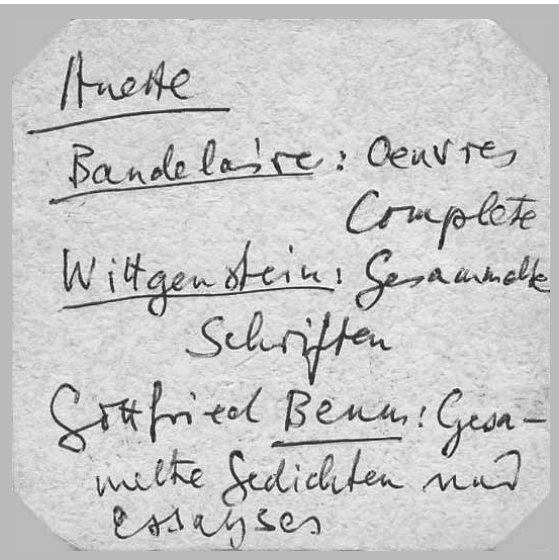 Baudelaire: Oeuvres
Complete
Wittgenstein: Gesammelte
Schriften
Gottfried Benn: Gesa-
melte Gedichten und
Essayses